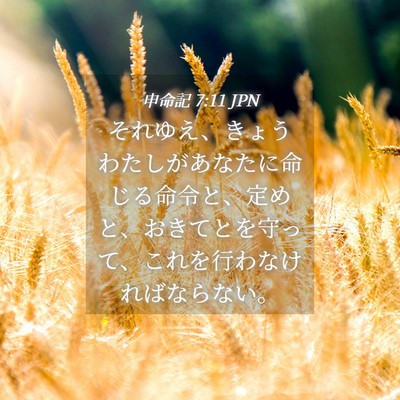 申命記 7:11 JPN
それゆえ、きょう
わたしがあなたに命
じる命令と、定め
と、おきてとを守っ
て、これを行わなけ
ればならない。